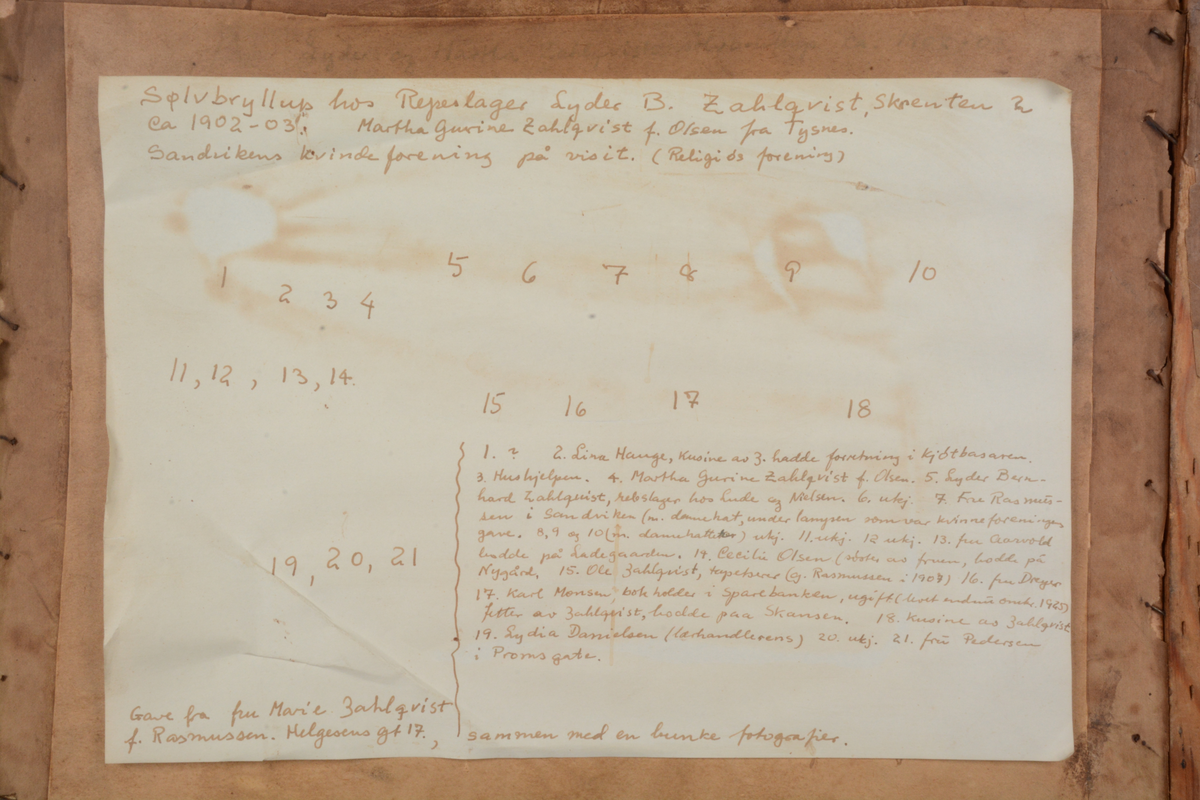 Sølvbryllup hos Repeslager Lyder B. Zahlqvist, Skrenten 2
Ca 1902-03. Martha Gurine Zahlqvist f. Olsen fra Tysnes.
Sandvikens kvindeforening på visit. (Religiøs forening)
1 2 3 4 5 6 7 8 9 10
11, 12, 13, 14.
15 16 17 18
1. ? 2. Lina Hauge, kusine av Z. hadde forretning i Kjøtbasaren.
3. Hushjelpen. 4. Martha Gurine Zahlqvist f. Olsen. 5. Lyder Bern-
hard Zahlqvist, rebslager hos Lude og Nielsen. 6. ukj. 7. Fru Rasmus-
sen i Sandviken (m. damehat, under lampen som var kvinneforeningens
gave. 8, 9 og 10 (m. damehatter) ukj. 11. ukj. 12 ukj. 13. fru Aarvold
bodde på Ladegaarden. 14. Cecilie Olsen (søster av fruen, bodde på
Nygård. 15. Ole Zahlqvist, tapetserer (g. Rasmussen i 1907) 16. fru Dreyer
17. Karl Monsen, bokholder i Sparebanken, ugift (levet endnu omkr. 1925)
fetter av Zahlqvist, bodde paa Skansen. 18. Kusine av Zahlqvist
19. Lydia Danielsen (lærhandlerens) 20. ukj. 21. fru Pedersen
i Proms gate.
19, 20, 21
Gave fra fru Marie Zahlqvist
f. Rasmussen. Helgesens gt 17., sammen med en bunke fotografier.